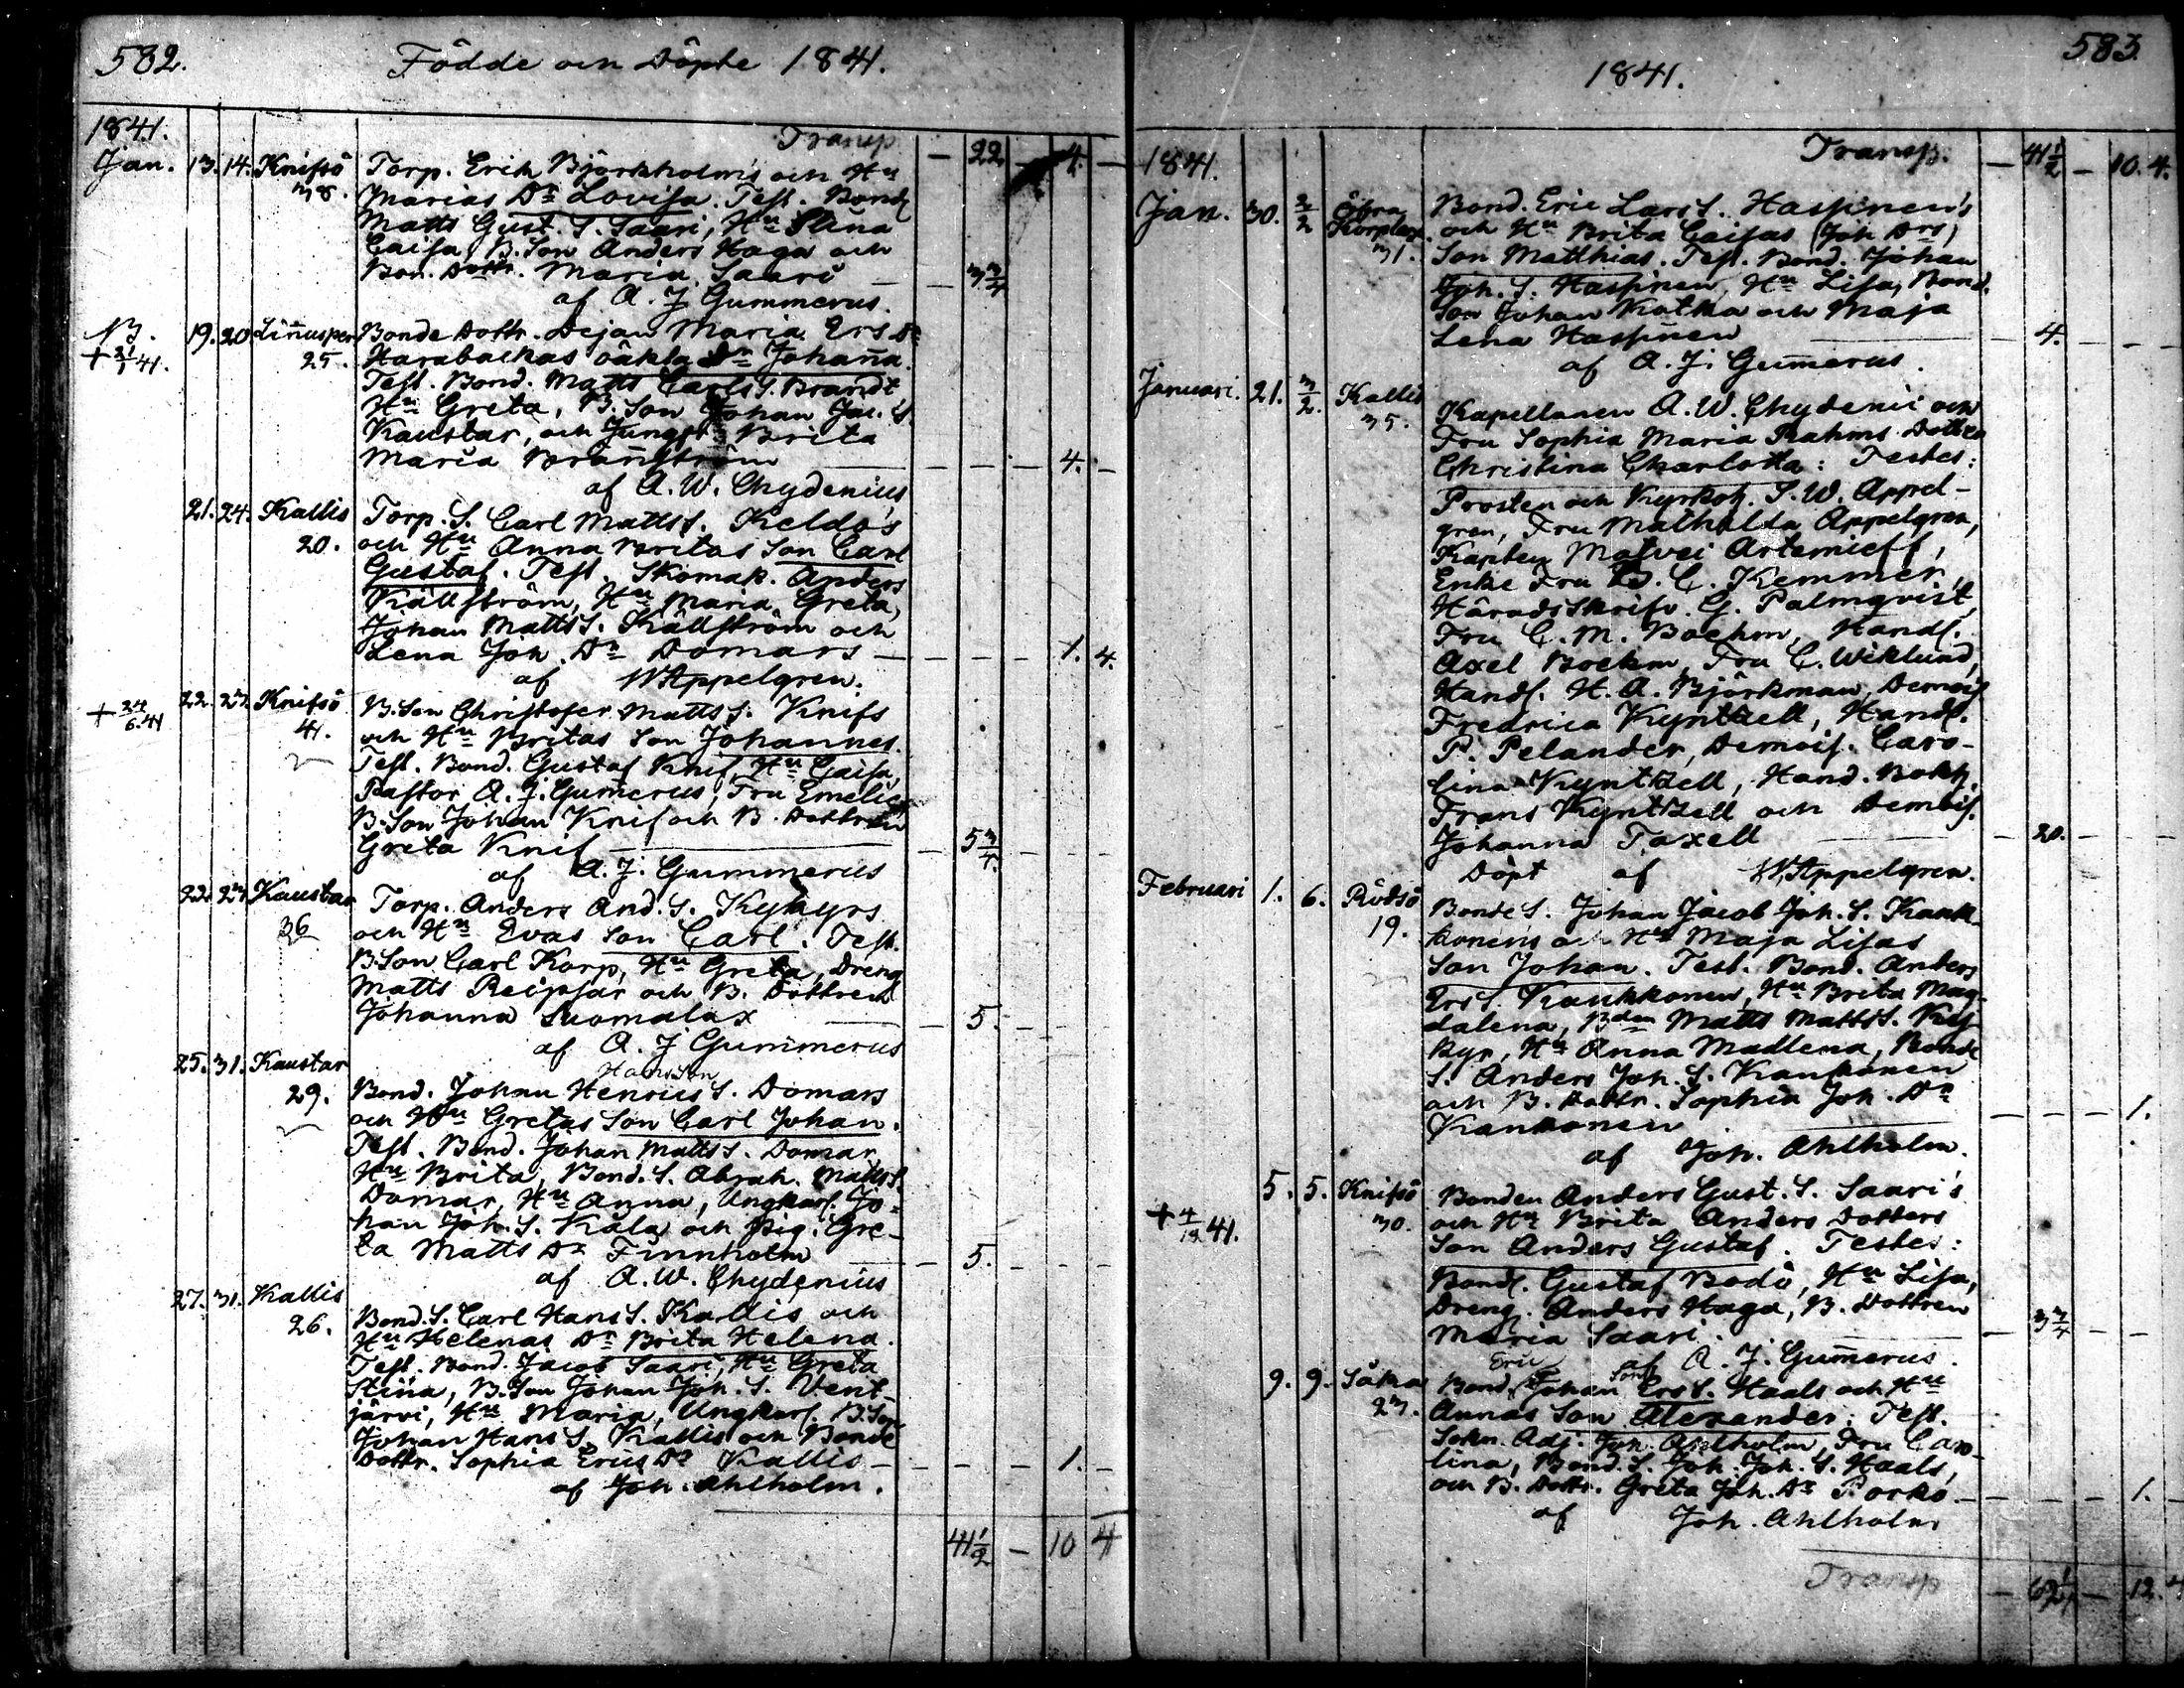 582.
Födde och Döpte 1841.
1841.
Transp
— 22 — 4. —
Jan. 13. 14. Knifsö Torp. Erik Björkholms och Hu
38. Marias Dr Lovisa. Test. Bond
Matts Gust. S. Saari, Hu Stina
Caisa, B. Son Anders Haga och
Bon. Dottr. Maria Saari — — 3 3/4
af A. J. Gummerus.
19. 20 Linusper Bonde Dottr. Dejan Maria Ers Dr
+ 21/1 41. 25. Harabackas oäkta Dr Johaña.
Test. Bond. Matts Carls S. Brandt
Hu Greta, B. Son Johan Jac. S.
Kaustar, och Jungfr Brita
Maria Brañström — — — — 4. —
af A. W. Chydenius
21. 24. Kallis Torp. S. Carl Matts S. Keldo's
20. och Hu Anna Britas Son Carl
Gustaf. Test. Skomak. Anders
Källström, Hu Maria Greta,
Johan Matts S. Källström och
Lena Joh. Dr Domars — — — — 1. 4.
af W. Appelgren.
22. 23 Knifsö B. Son Christofer Matts S. Knifs
+ 24/6. 41 41. och Hu Britas Son Johannes.
Test. Bond. Gustaf Knif, Hu Caisa,
Pastor A. J. Gumerus, Fru Emelie,
B. Son Johan Knif och B. Dottren
Greta Knif — — 5 3/4. — — —
af A. J. Gummerus
22. 23 Kaustar Torp. Anders And. S. Kykyrs
36 och Hu Evas Son Carl. Test.
B. Son Carl Korp, Hu Greta, Dreng
Matts Reipsar och B. Dottren
Johanna Suomalax — — 5. — — —
af A. J Gummerus
Hans Son
25. 31. Kaustar Bond. Johan Henrics S. Domars
29. och Hu Gretas Son Carl Johan.
Test. Bond. Johan Matts S. Domar
Hu Brita, Bond. S. Abrah. Matts S.
Domar, Hu Anna, Ungkarl. Jo-
han Joh. S. Kåla och Pig. Gre-
ta Matts Dr Finnholm — — 5. — — —
af A. W. Chydenius
27. 31. Kallis Bond. S. Carl Hans S. Kallis och
26. Hu Helenas Dr Brita Helena.
Test. Bond. Jacob Saari, Hu Greta
Stina, B. Son Johan Joh. S. Vent-
järvi, Hu Maria, Ungkarl. B. Son
Johan Hans S. Kallis och Bonde
Dottr. Sophia Erics Dr Kallis — — — — 1. —
af Joh. Ahlholm.
41 1/2 — 10 4
583.
1841.
Transp. — 41 1/2 — 10. 4.
1841.
Jan. 30. 2/2 Öfra Bond. Eric Lars S. Haspinen's
Korplax och Hu Brita Caisas (Joh Drs)
31. Son Matthias. Test. Bond. Johan
Joh. S. Haspinen, Hu Lisa, Bond.
Son Johan Kotka och Maja
Lena Haspinen — — 4. — — —
af A. J. Gumerus.
Januari. 21. 3/2. Kallis Kapellanen A. W. Chydenii och
35. Fru Sophia Maria Rahms Dotter
Christina Charlotta: Testes:
Prosten och Kyrkoh. S. W. Appel-
gren, Fru Mathilda Appelgren,
Kapten Matvei Artemieff,
Enke Fru C. Kemmer,
Häradsskrifv. G. Palmqvist,
Fru C. M. Boehm, Handl.
Axel Boehm, Fru C. Wiklund,
Handl. H. A. Björkman, Demois
Fredrica Kyntzell, Handl.
P. Pelander, Demois. Caro-
lina Kyntzell, Hand. Bokh.
Frans Kyntzell och Demois.
Johanna Taxell — — 20. — — —
Döpt af W. Appelgren.
Februari 1. 6. Rödsö Bonde S. Johan Jacob Joh. S. Kauk-
19. konens och Hu Maja Lisas
Son Johan. Test. Bond. Anders
Ers S. Kaukkonen, Hu Brita Mag-
dalena, Bden Matts Matts S. Ky-
kyr, Hu Anna Madlena, Bonde
S. Anders Joh. S. Kaukonen
och B. Dottr. Sophia Joh. Dr
Kaukonen — — — — 1.
af Joh. Ahlholm.
5. 5. Knifsö Bonden Anders Gust. S. Saari's
+ 4/12 41. 30. och Hu Brita Anders Dotters
Son Anders Gustaf. Testes:
Bond. Gustaf Bodö, Hu Lisa,
Dreng. Anders Haga, B. Dottren
Maria Saari. — 3 3/4 — —
af A. J. Gumerus.
Eric Son
9. 9. Såka Bond. Johan Ers S. Haals och Hu
23. Annas Son Alexander. Test.
Sokn. Adj. Joh. Ahlholm, Fru Caro-
lina, Bond. S. Joh. Joh. S. Haals,
och B. Dottr. Greta Joh. Dr Porko — — — — 1. —
af Joh. Ahlholm
Transp — — 12. 4